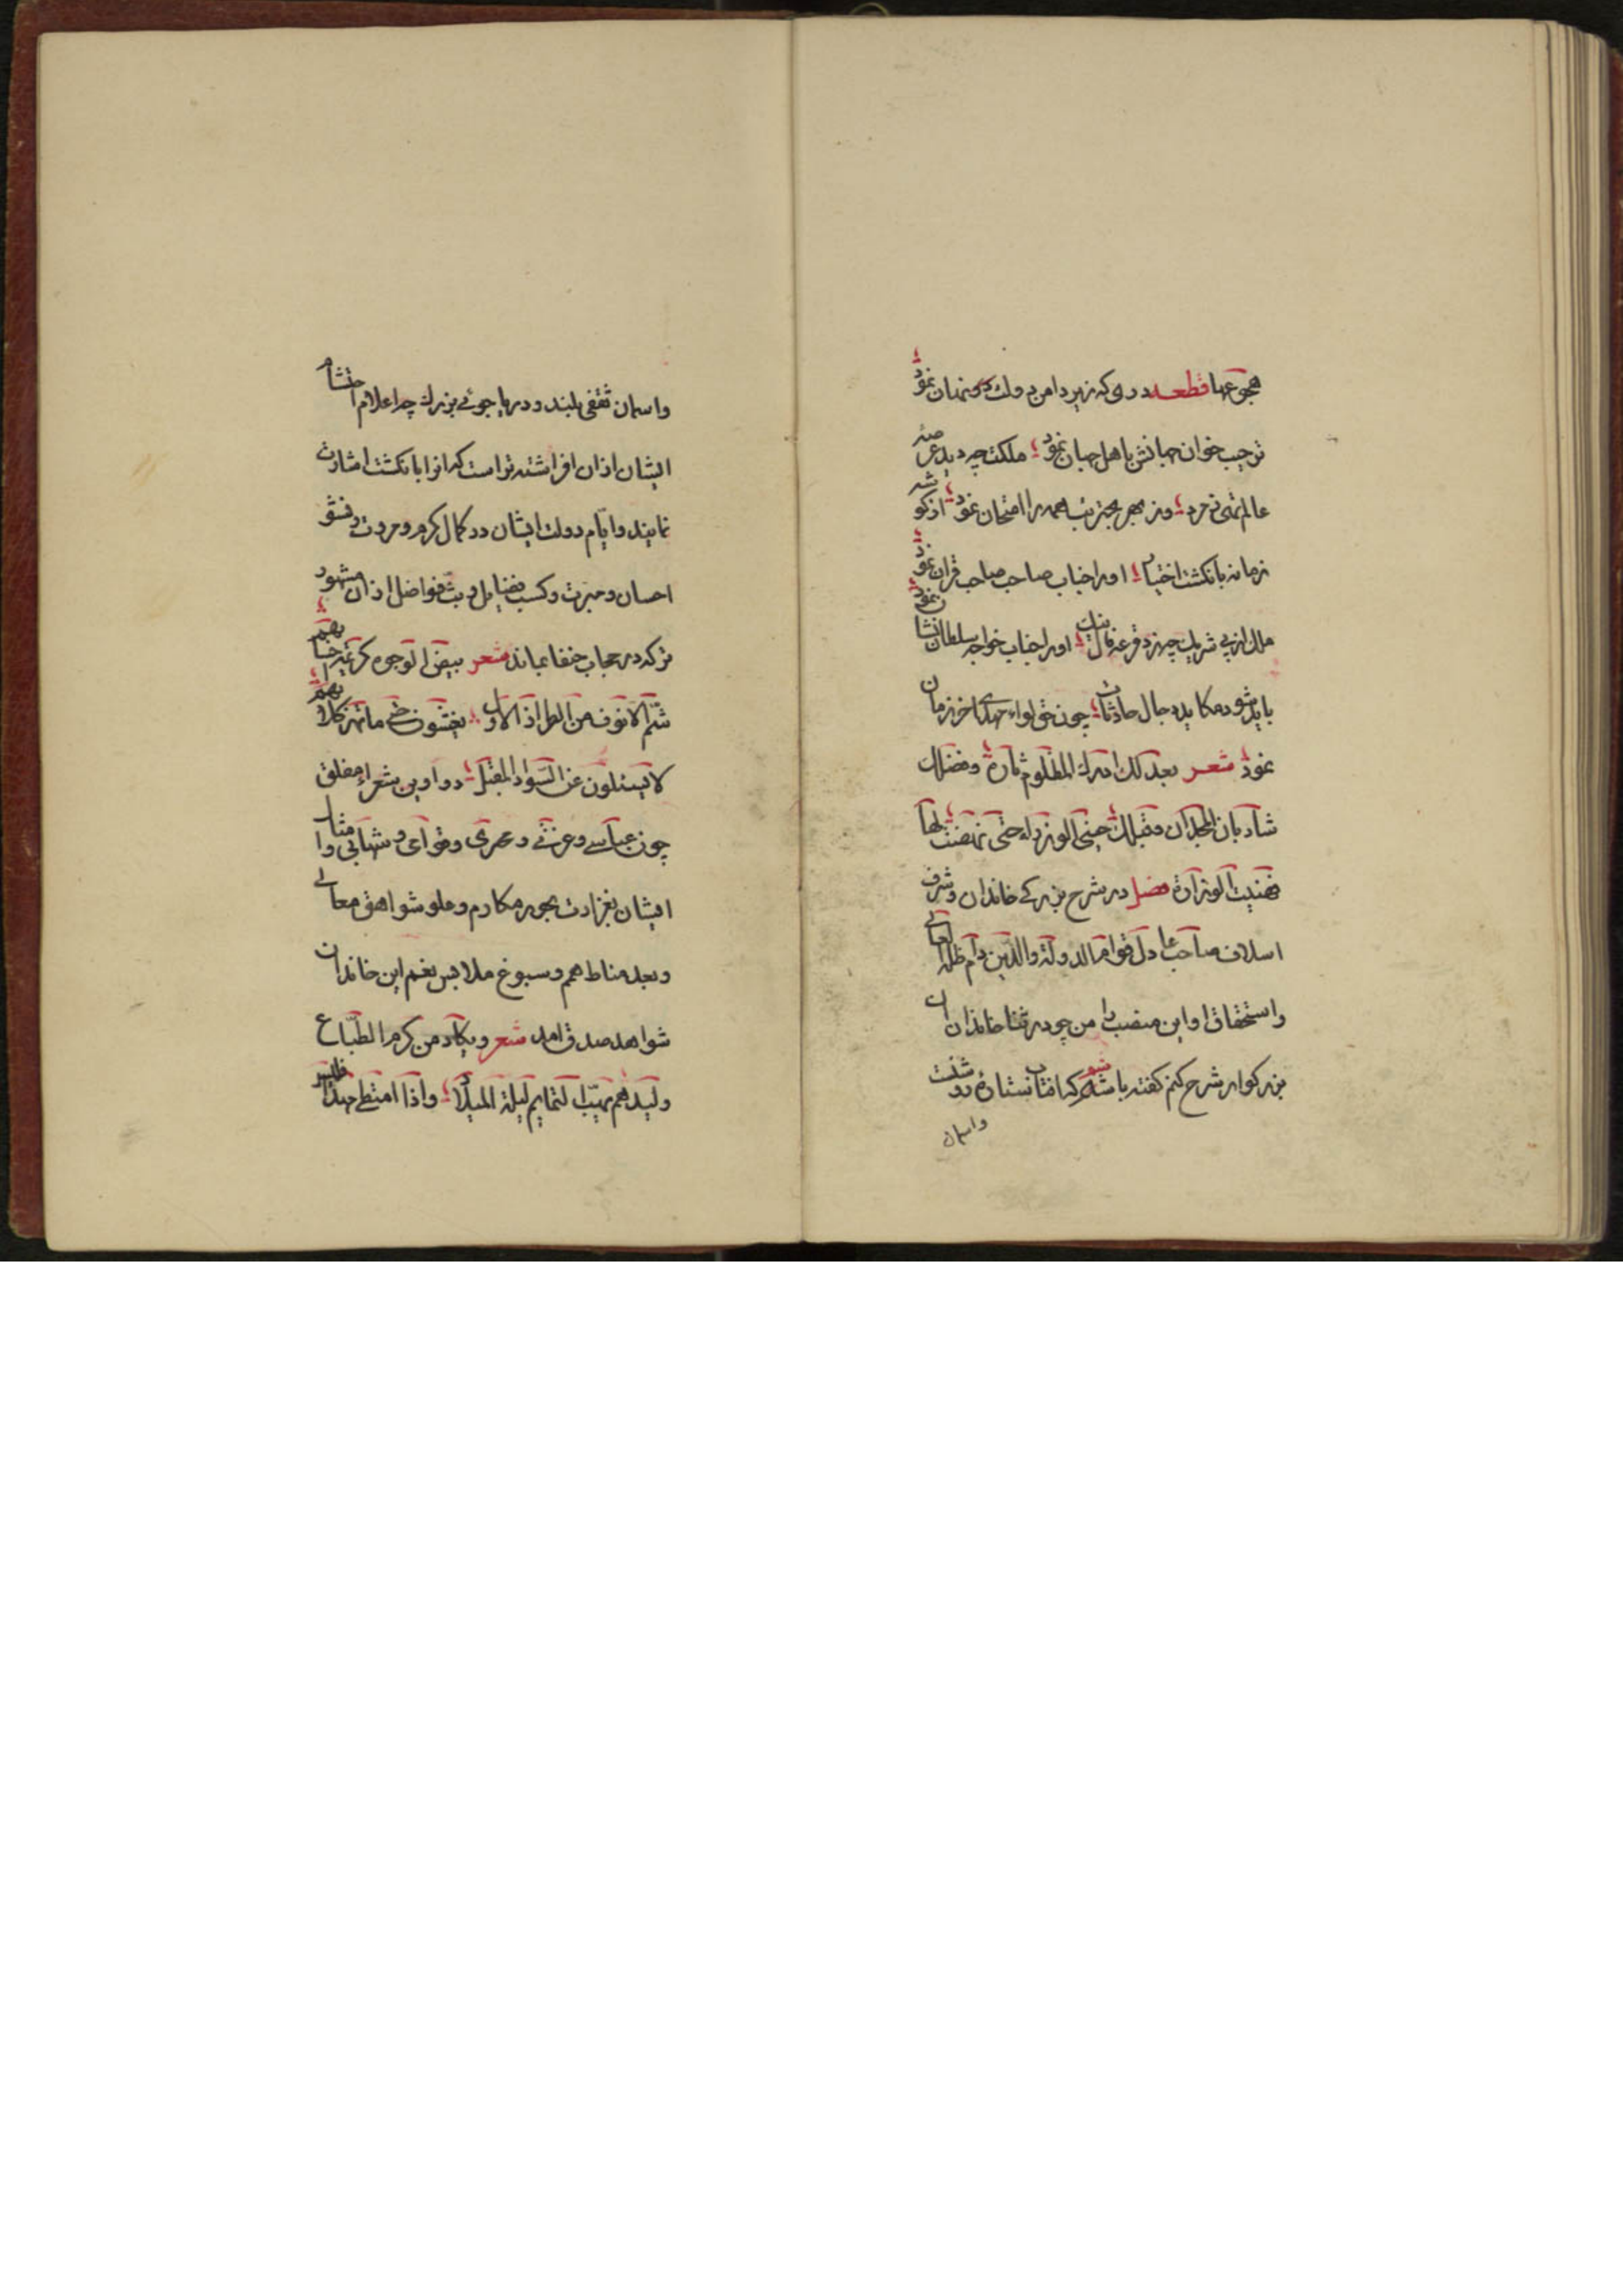 هجوعها قطعه دری که زیر دامن دولت نهان نمود
ترحیب خوان جهانش باهل جهان نمود ملکت چه دید عرصه
عالم تهی ز مرد وز بهر تجربت همه را امتحان نمود از گوشه
زمانه بانگشت اختیار او را جناب صاحب صاحب قران نمود
ملک از پی شریک چو زد قرعه فال نیک او را جناب خواجه سلطان نشان نمود
باید شود مکاید دجال حادثات چون حق لواء مهدی آخر زمان
نمود شعر بعدلک ادرک المظلوم ثاره وفضلک
شاد بان المجد کان وقبلک حتی نهضت لها
فهنیت الوزارة فصل در شرح بزرگی خاندان وشرف
اسلاف صاحب عادل قوام الدولة والدین دام ظله العالی
واستحقاق او این منصب را من چو در ثنا خاندان آن
بزرگوار شرح کنم گفته باشم که آفتاب ستارهٔ روشنست
واسمان
واسمان سقفی بلند ودریا جوئی بزرک چه اعلام احتشام
ایشان ازان افراشته تراست که انرا بانگشت اشارت
نمایند وایّام دولت ایشان در کمال کرم ومروت ونشو
احسان ومبرت وکسب فضایل وبثّ فواضل ازان مشهور
تر که در حجاب خفا بماند شعر بیض الوجوه کریمة احسابهم
شمّ الانوف من الطراز الاول یغشون حتی ما تهر کلابهم
لا یسئلون عن السّواد المقبل دواوین شعراء مفلق
چون عباسی وغزی وعمری وقوامی وشهابی وامثال
ایشان بغزارت بحور مکارم وعلو شواهق معالی
وبعد مناط همم وسبوغ ملابس نعم این خاندان
شواهد صدق اند شعر ویکاد من کرم الطّباع
ولیدهم یهب التمایم لیلة المیلاد واذا امتطی مهدا